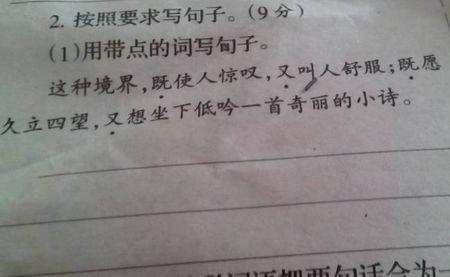 2. 按照要求写句子。(9分)
(1)用带点的词写句子。
这种境界,既使人惊叹,又叫人舒服;既愿
久立四望,又想坐下低吟一首奇丽的小诗。
词语把两句话合为一